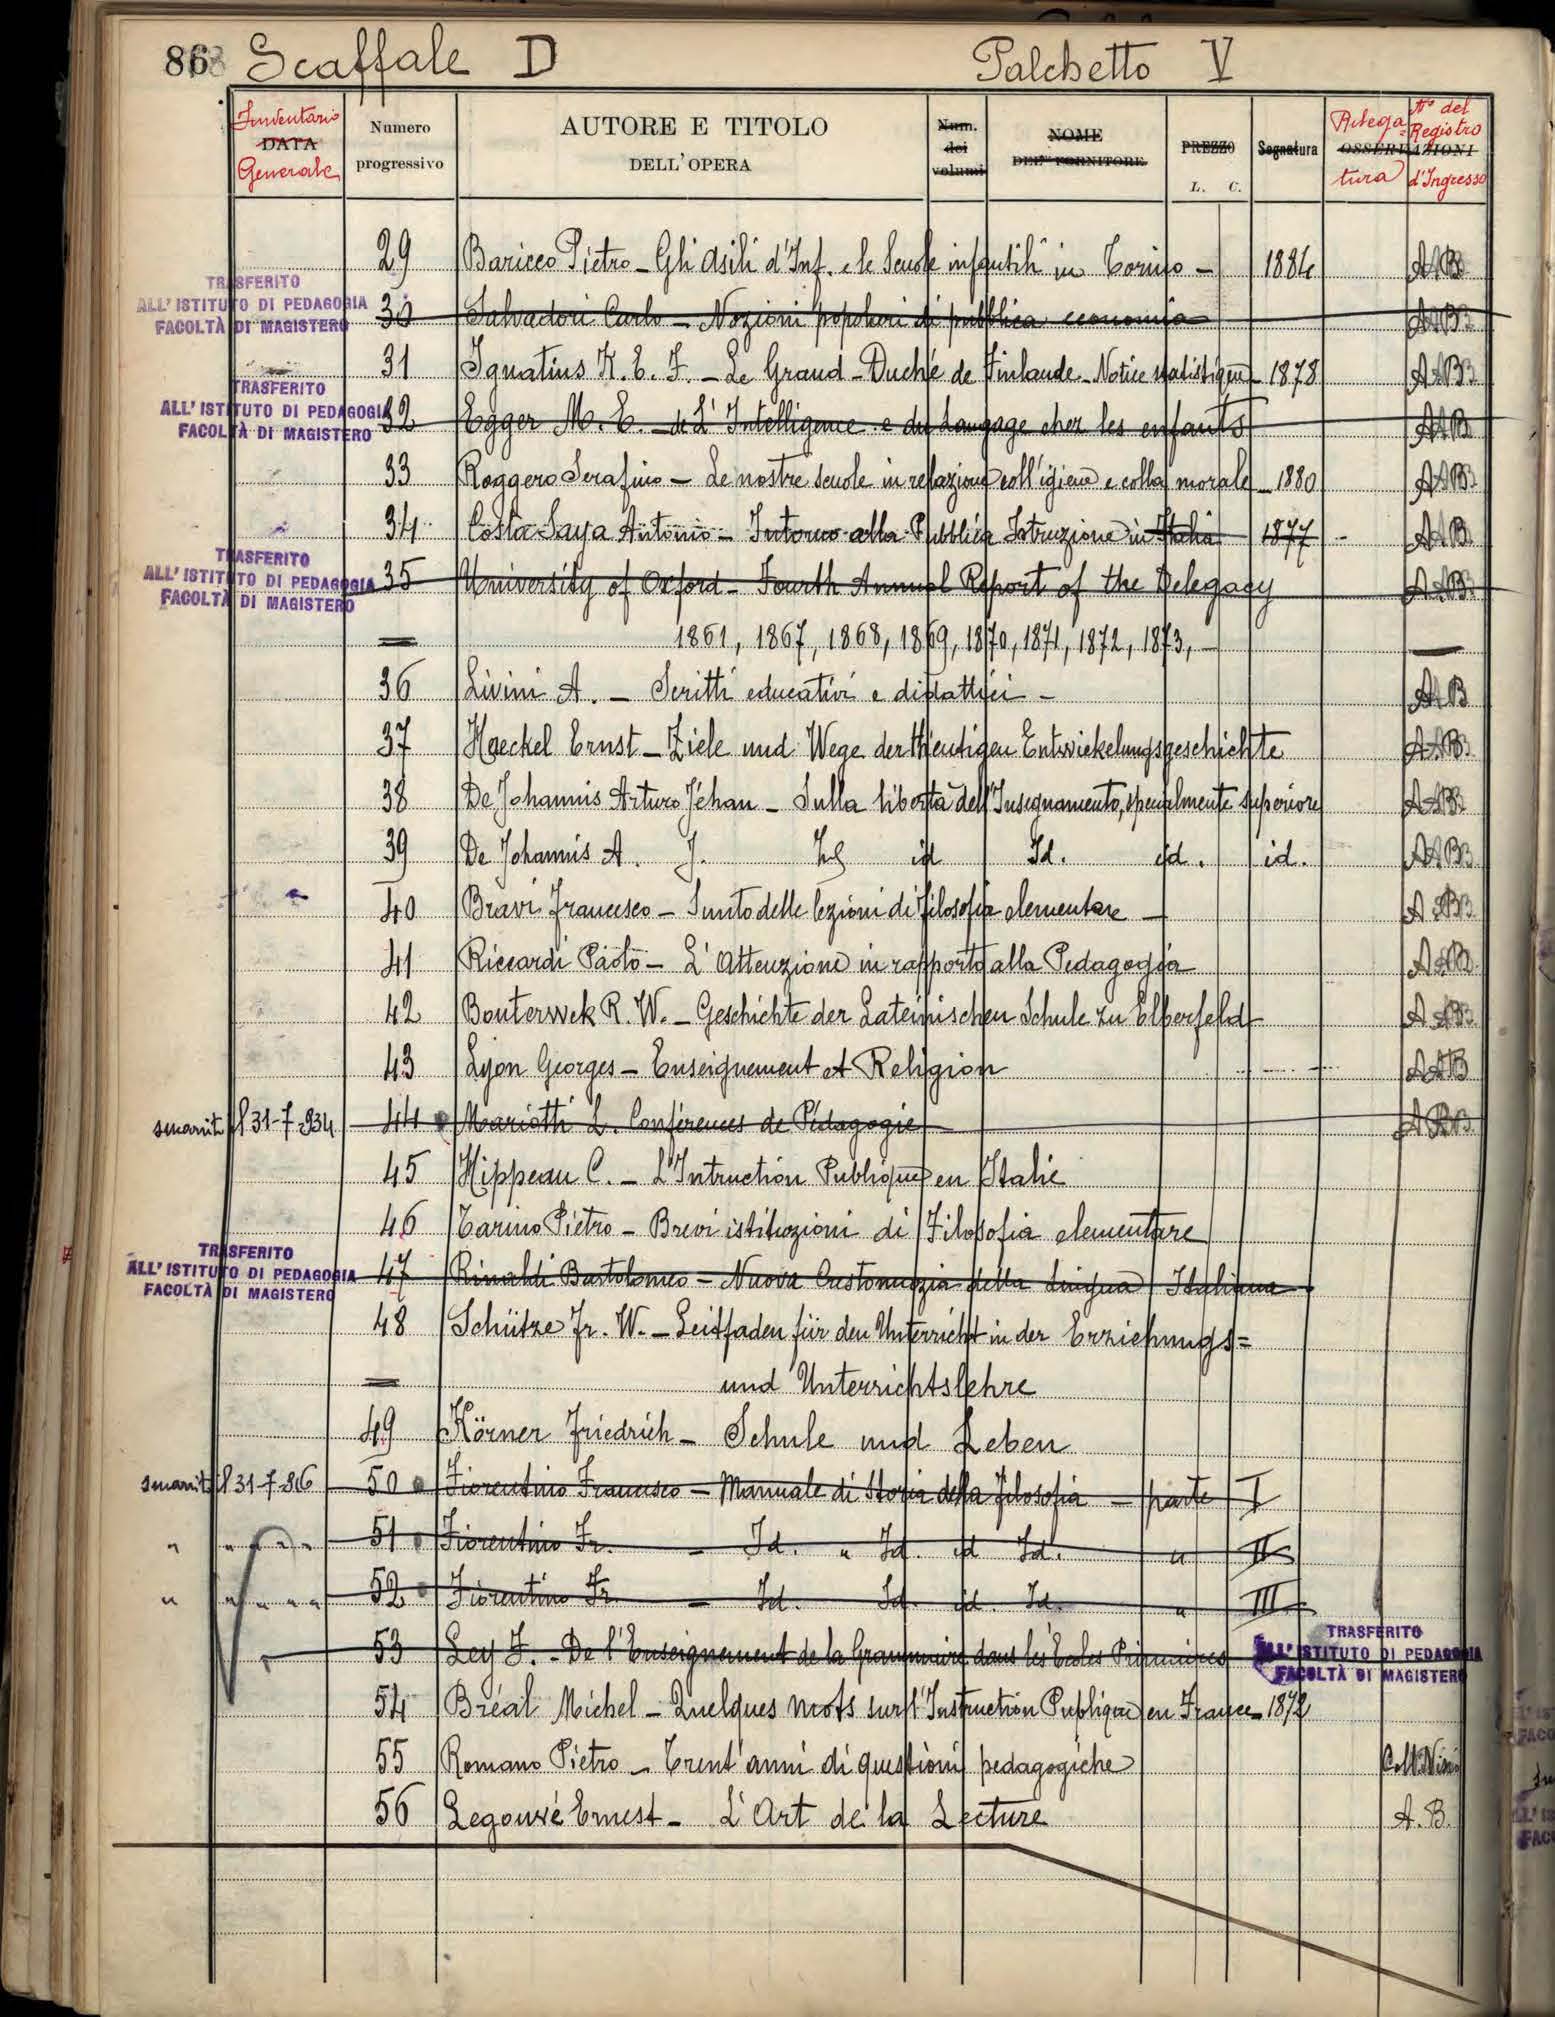 868 Scaffale D Palchetto V
Inventario DATA Generale Numero progressivo AUTORE E TITOLO DELL'OPERA Num. dei volumi NOME DEL FORNITORE PREZZO L. C. Segnatura Rilegatura OSSERVAZIONI N° del Registro d'Ingresso
29 Baricco Pietro - Gli Asili d'Inf. e le Scuole infantili in Torino - 1884 AAB
TRASFERITO
ALL'ISTITUTO DI PEDAGOGIA
FACOLTÀ DI MAGISTERO
30 Salvadori Carlo - Nozioni popolari di pubblica economia
31 Ignatius K. E. F. - Le Grand-Duché de Finlande - Notice statistique - 1878
TRASFERITO
ALL'ISTITUTO DI PEDAGOGIA
FACOLTÀ DI MAGISTERO
32 Egger M. E. - de L'Intelligence e du Langage chez les enfants
33 Roggero Serafino - Le nostre scuole in relazione coll'igiene e colla morale - 1880
34 Costa Saya Antonio - Intorno alla Pubblica Istruzione in Italia 1877 -
TRASFERITO
ALL'ISTITUTO DI PEDAGOGIA
FACOLTÀ DI MAGISTERO
35 University of Oxford - Fourth Annual Report of the Delegacy
= 1861, 1867, 1868, 1869, 1870, 1871, 1872, 1873, -
36 Livini A. - Scritti educativi e didattici -
37 Haeckel Ernst - Ziele und Wege der Heutigen Entwickelungsgeschichte
38 De Johannis Arturo Jéhan - Sulla libertà dell'Insegnamento, specialmente superiore
39 De Johannis A. J. Id id Id. id. id.
40 Bravi Francesco - Sunto delle lezioni di filosofia elementare -
41 Riccardi Paolo - L'Attenzione in rapporto alla Pedagogia
42 Bouterwek R. W. - Geschichte der Lateinischen Schule zu Elberfeld
43 Lyon Georges - Enseignement et Religion
smarrit il 31-7-934 44 Mariotti L. Conférences de Pédagogie
45 Hippeau C. - L'Intruction Publique en Italie
46 Tarino Pietro - Brevi istituzioni di Filosofia elementare
TRASFERITO
ALL'ISTITUTO DI PEDAGOGIA
FACOLTÀ DI MAGISTERO
47 Rinaldi Bartolomeo - Nuova Customazia della lingua Italiana
48 Schütze Fr. W. - Leitfaden für den Unterricht in der Erziehungs=
= und Unterrichtslehre
49 Körner Friedrich - Schule und Leben
smarrit il 31-7-36 50 Fiorentino Francesco - Manuale di Storia della filosofia - parte I
" " " " " 51 Fiorentino Fr. - Id. " Id. id Id. " II
" " " " " 52 Fiorentino Fr. - Id. Id. id. Id. " III
53 Ley F. - De l'Enseignement de la Grammaire dans les Ecoles Primaires
TRASFERITO
ALL'ISTITUTO DI PEDAGOGIA
FACOLTÀ DI MAGISTERO
54 Bréal Michel - Quelques mots sur l'Instruction Publique en France - 1872
55 Romano Pietro - Trent'anni di questioni pedagogiche
56 Legouvé Ernest - L'Art de la Lecture A. B.